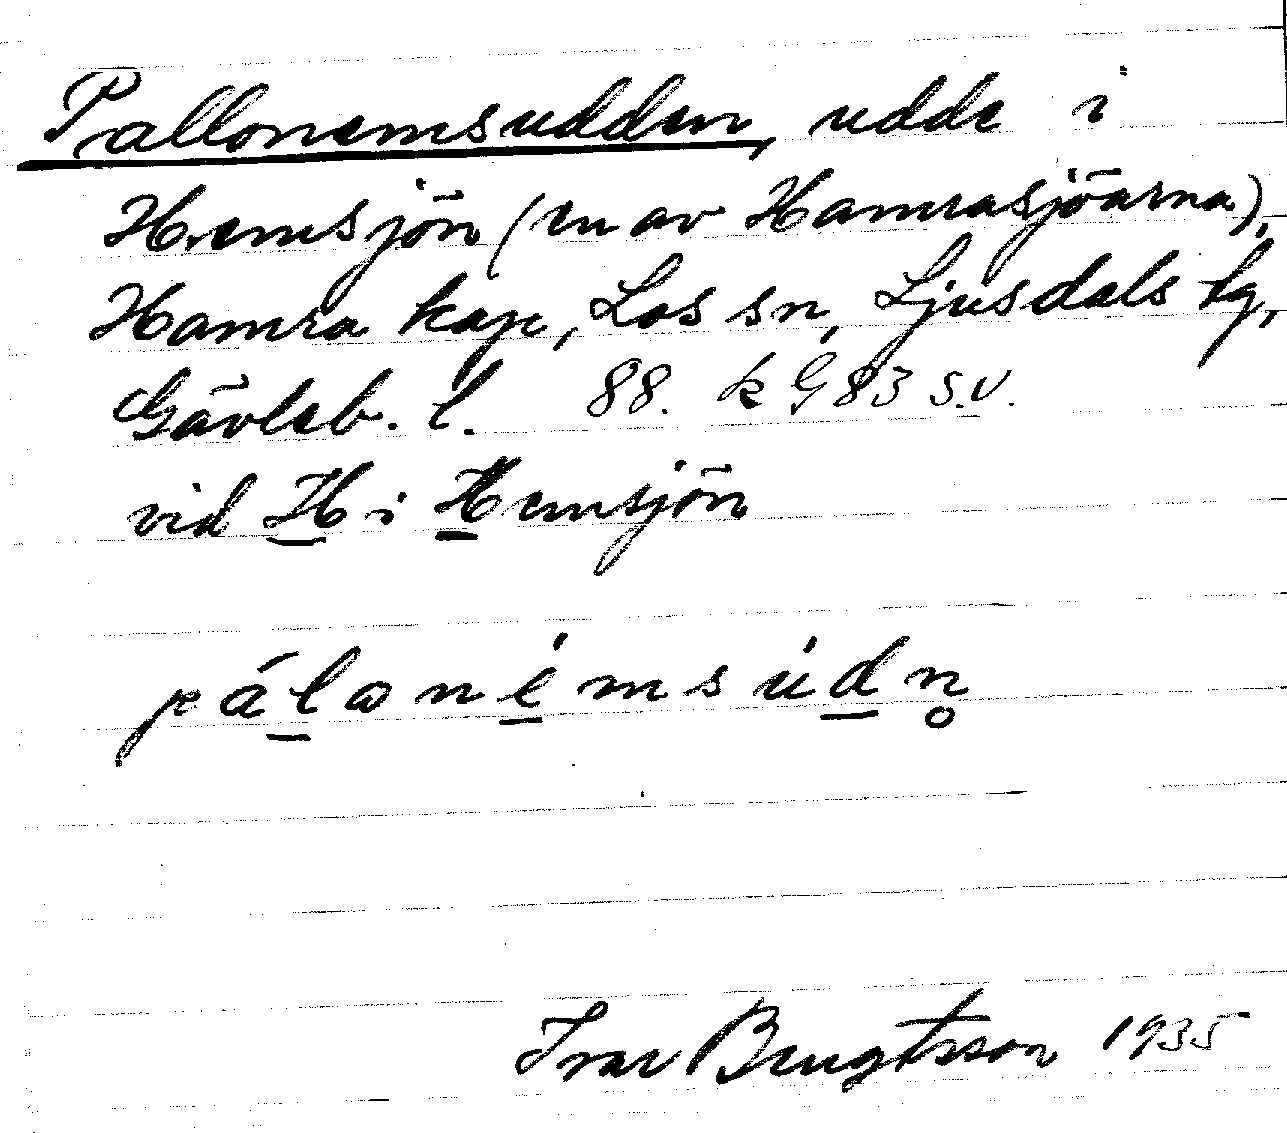 Pallonemsudden, udde i
Hemsjön (en av Hamrasjöarna),
Hamra kap, Los sn, Ljusdals tg,
Gävleb. l. 88. k G 83 S.V.
vid H i Hemsjön
pálonémsúdn̥
Ivar Bengtsson 1935